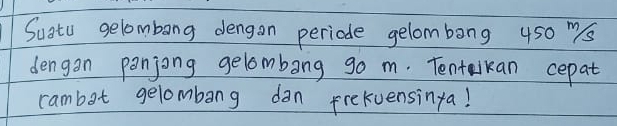 Suatu gelombang dengan periode gelombang 450 m/s
dengan panjang gelombang 90 m. Tentukan cepat
rambat gelombang dan frekuensinya!